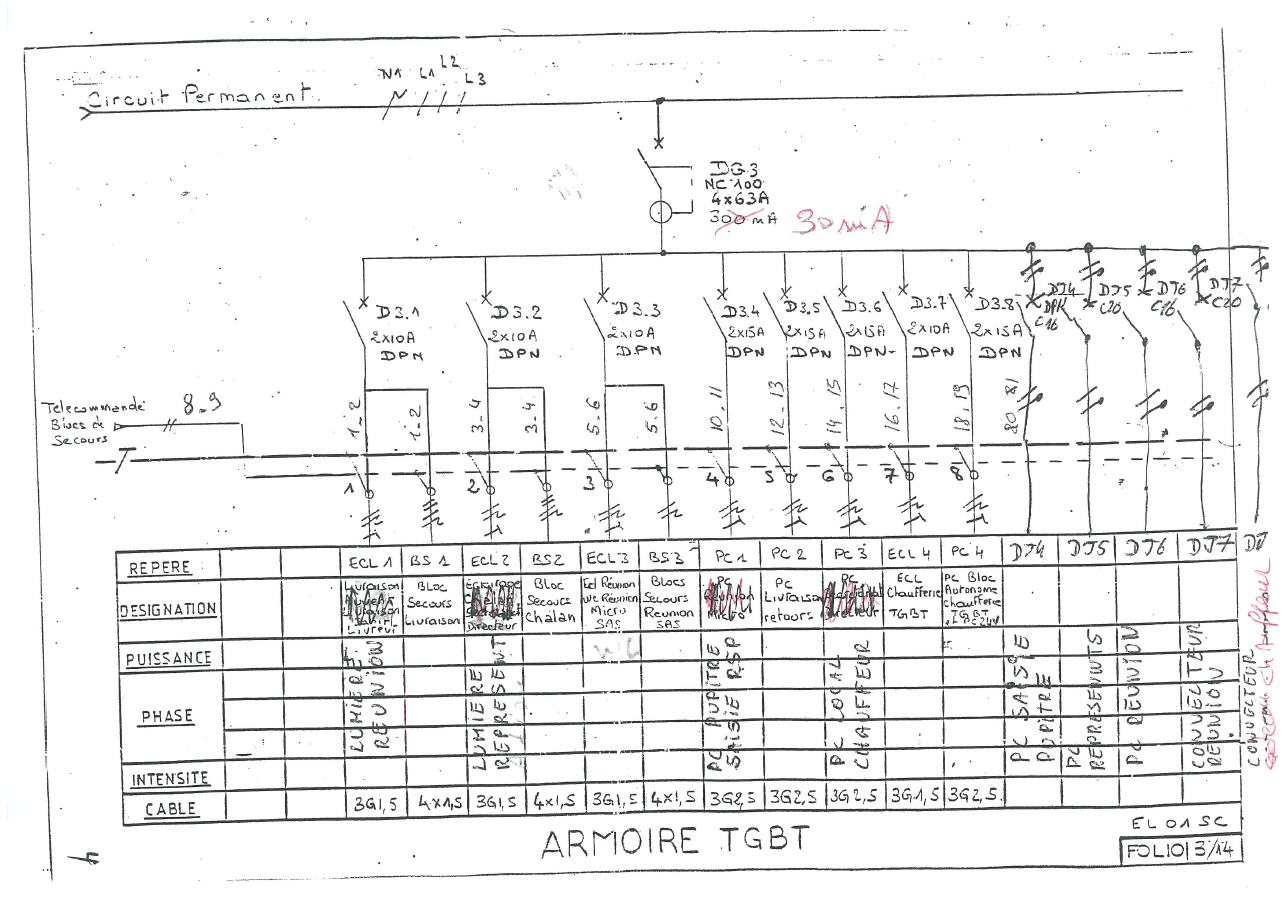 N1 L1 L2 L3
Circuit Permanent.
DG.3
NC 100
4x63A
300 mA
30 mA
D3.1
2x10A
DPN
D3.2
2x10A
DPN
D3.3
2x10A
DPN
D3.4
2x15A
DPN
D3.5
2x15A
DPN
D3.6
2x15A
DPN
D3.7
2x10A
DPN
D3.8
2x15A
DPN
DJ4
DPN
C16
DJ5
C20
DJ6
C16
DJ7
C20
Telecommande
Blocs de
Secours
8_9
1_2
1_2
3_4
3_4
5_6
5.6
10_11
12_13
14_15
16_17
18_19
80_81
1 2 3 4 5 6 7 8
REPERE ECL 1 BS 1 ECL 2 BS2 ECL 3 BS3 PC 1 PC 2 PC 3 ECL 4 PC 4 DJ4 DJ5 DJ6 DJ7 DJ
DESIGNATION
Livraison
Livreur
Bloc
Secours
Livraison
Eclairage
Directeur
Bloc
Secours
Chalan
Ecl Réunion
WC Réunion
Micro
SAS
Blocs
Secours
Reunion
SAS
PC
Micro
PC
Livraison
retours
PC
Directeur
ECL
Chaufferie
TGBT
PC Bloc
Autonome
chaufferie
TGBT
PUISSANCE
PHASE
INTENSITE
LUMIERE
REUNION
LUMIERE
REPRESENT
PC PUPITRE
SAISIE RSP
PC LOCAL
CHAUFFEUR
PC SAISIE
PUPITRE
PC
REPRESENNTS
PC REUNION
CONVECTEUR
REUNION
CONVECTEUR
CABLE 3G1,5 4x1,5 3G1,5 4x1,5 3G1,5 4x1,5 3G2,5 3G2,5 3G2,5 3G1,5 3G2,5.
ARMOIRE TGBT
EL 01 SC
FOLIO 3/14
4